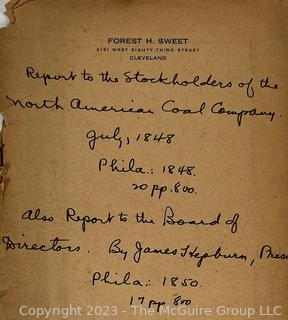 FOREST H. SWEET
3151 WEST EIGHTY-THIRD STREET
CLEVELAND
Report to the Stockholders of the
North American Coal Company.
July, 1848
Phila.: 1848.
20 pp. 800.
Also Report to the Board of
Directors. By James Hepburn, Pres
Phila.: 1850.
17 pp 800
Copyright 2023 - The McGuire Group LLC